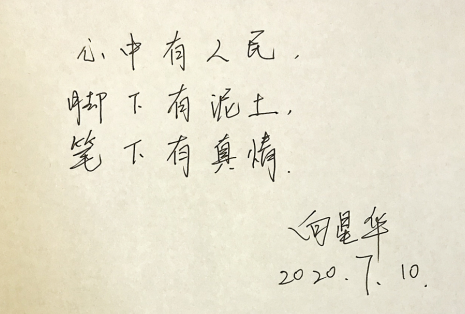 心中有人民，
脚下有泥土，
笔下有真情.
向星华
2020.7.10.